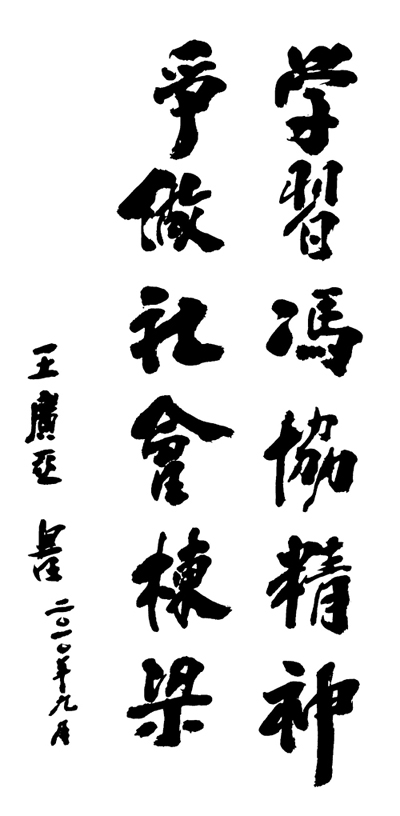 学習馮協精神
爭做社會棟梁
王廣亞 書 二〇一〇年九月